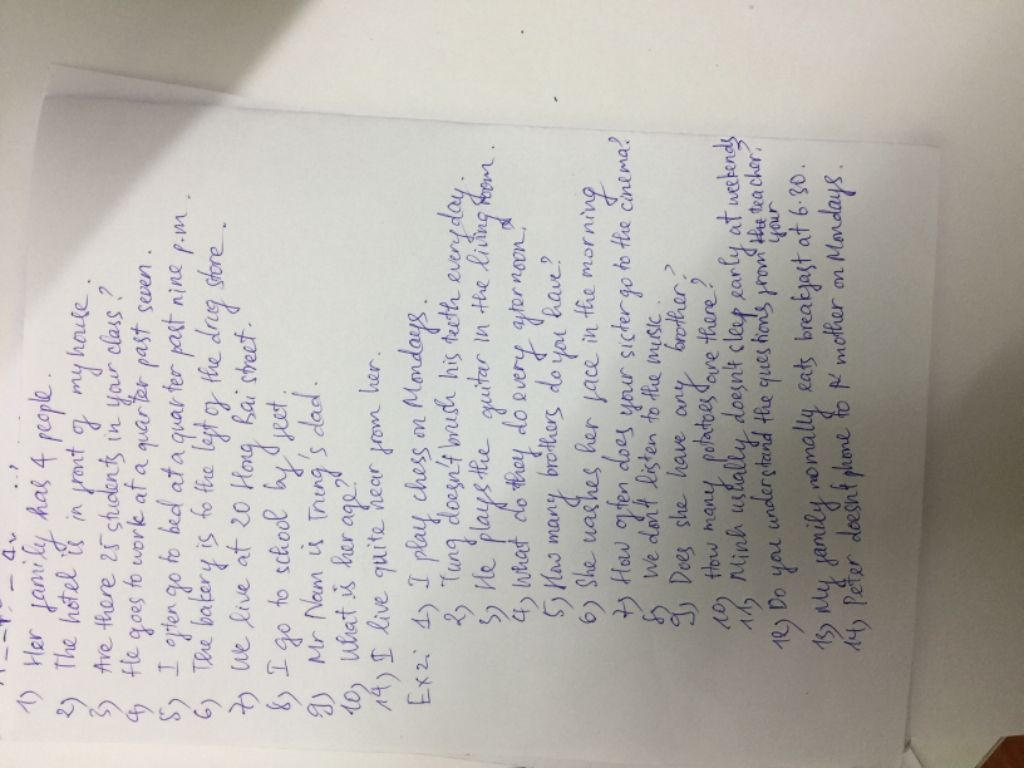 1) Her family has 4 people.
2) The hotel is in front of my house.
3) Are there 25 students in your class?
4) He goes to work at a quarter past seven.
5) I often go to bed at a quarter past nine p.m.
6) The bakery is to the left of the drug store.
7) We live at 20 Hong Bai street.
8) I go to school by feet.
9) Mr Nam is Trung's dad.
10) What is her age?
14) I live quite near from her.
Ex2: 1) I play chess on Mondays.
2) Tung doesn't brush his teeth everyday.
3) He plays the guitar in the living room.
4) What do they do every afternoon?
5) How many brothers do you have?
6) She washes her face in the morning
7) How often does your sister go to the cinema?
8) We don't listen to the music.
9) Does she have any brother?
10) How many potatoes are there?
11) Minh usually doesn't sleep early at weekends
12) Do you understand the questions from the teacher?
your
13) My family normally eats breakfast at 6.30.
14) Peter doesn't phone to mother on Mondays.